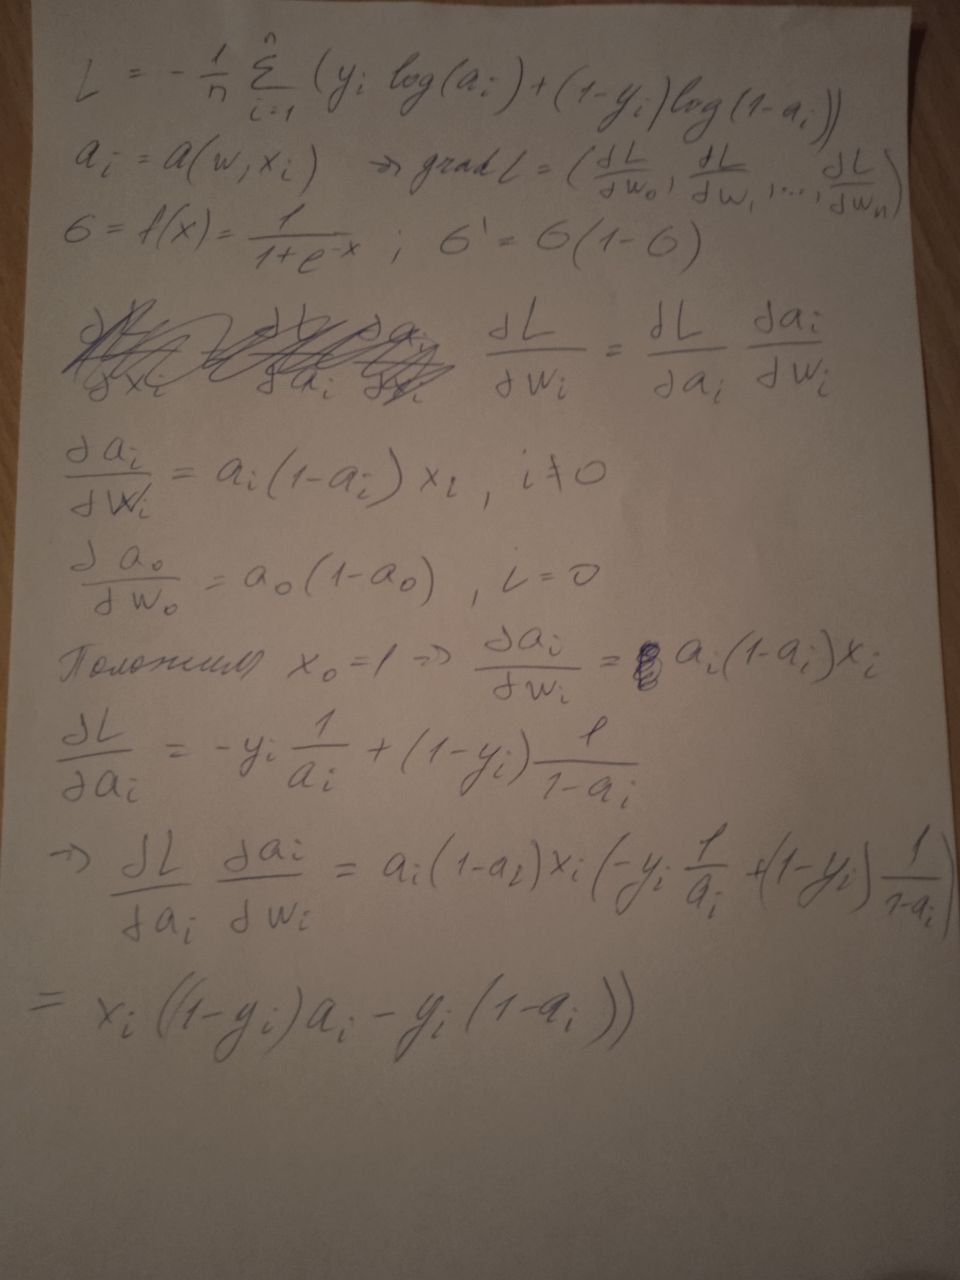 L = - 1/n Σ_{i=1}^{n} (y_i log(a_i) + (1-y_i) log(1-a_i))
a_i = a(w, x_i) → grad L = (∂L/∂w_0, ∂L/∂w_1, ..., ∂L/∂w_n)
σ = f(x) = 1/(1+e^{-x}) ; σ' = σ(1-σ)
∂L/∂w_i = ∂L/∂a_i ∂a_i/∂w_i
∂a_i/∂w_i = a_i(1-a_i) x_i , i ≠ 0
∂a_0/∂w_0 = a_0(1-a_0) , i = 0
Положим x_0 = 1 → ∂a_i/∂w_i = a_i(1-a_i)x_i
∂L/∂a_i = -y_i 1/a_i + (1-y_i) 1/(1-a_i)
→ ∂L/∂a_i ∂a_i/∂w_i = a_i(1-a_i)x_i (-y_i 1/a_i + (1-y_i) 1/(1-a_i))
= x_i((1-y_i)a_i - y_i(1-a_i))